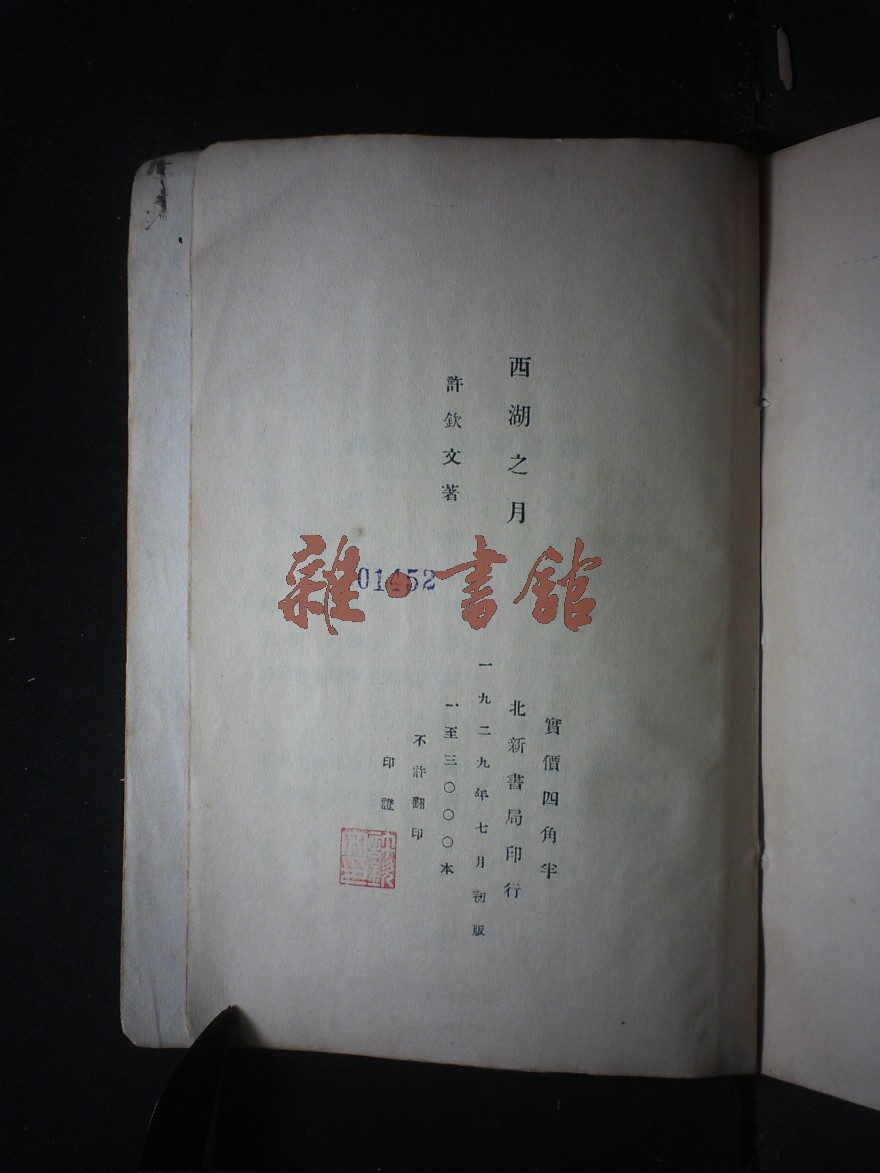 西湖之月
許欽文著
實價四角半
北新書局印行
一九二九年七月初版
一至三〇〇〇本
不許翻印
印證
01452
雜·書館